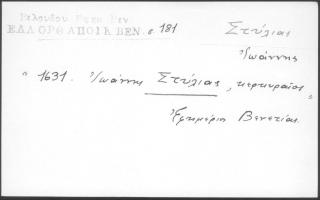 Βελούδου Χρυσ Βεν
ΕΛΛ ΟΡΘ ΑΠΟΙΚ ΒΕΝ. σ 181
Στύλιας
Ἰωάννης
" 1631. Ἰωάννης Στύλιας, κερκυραῖος"
Ἐφημέριος Βενετίας.